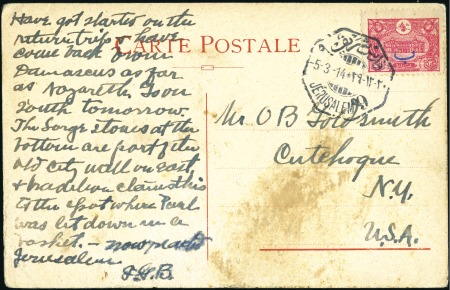 Have got started on the
return trip & have
come back from
Damascus as far
as Nazareth. Go on
South tomorrow.
The large stones at the
bottom are part of the
old city wall on east
& tradition claims this
to the spot where Paul
was let down in a
basket. – now
Jerusalem
CARTE POSTALE
5-3-14
JERUSALEM
Mr. O B Goldsmith
Cutchogue
N.Y.
U.S.A.